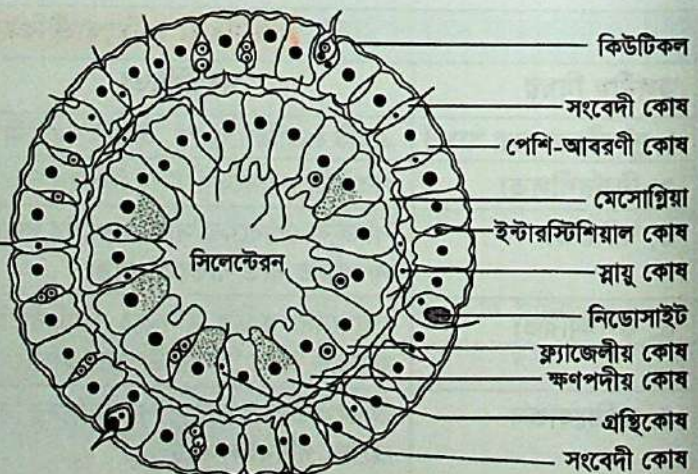 কিউটিকল
সংবেদী কোষ
পেশি-আবরণী কোষ
মেসোগ্লিয়া
ইন্টারস্টিশিয়াল কোষ
স্নায়ু কোষ
নিডোসাইট
ফ্ল্যাজেলীয় কোষ
ক্ষণপদীয় কোষ
গ্রন্থিকোষ
সংবেদী কোষ
সিলেন্টেরন